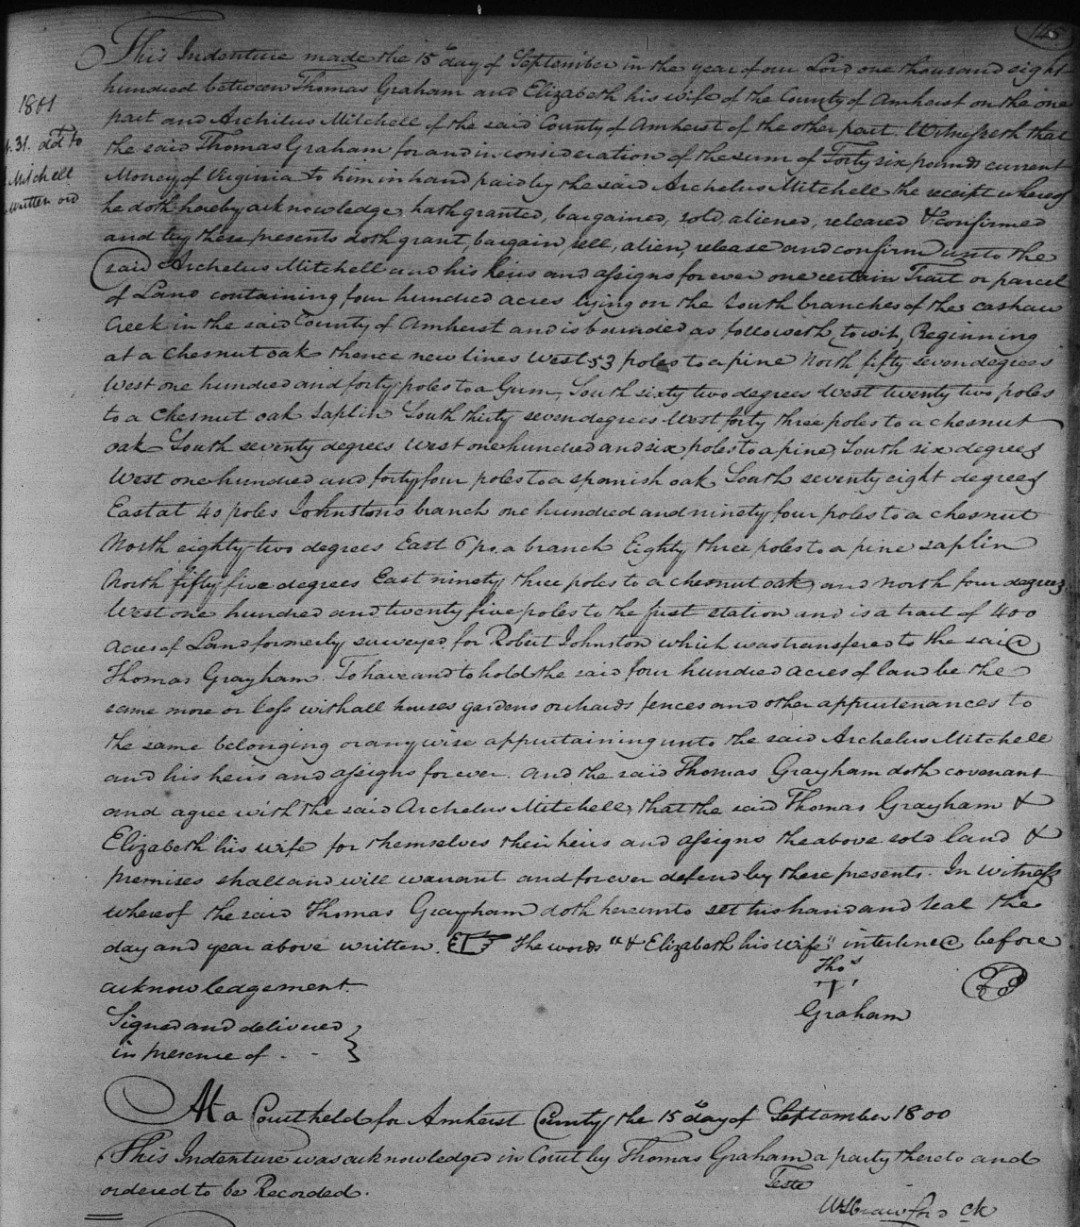 145
This Indenture made the 15th day of September in the year of our Lord one thousand eight
hundred between Thomas Graham and Elizabeth his wife of the County of Amherst on the one
part and Archilus Mitchell of the said County of Amherst of the other part. Witnesseth that
the said Thomas Graham for and in consideration of the sum of Forty six pounds current
Money of Virginia to him in hand paid by the said Archelus Mitchell the receipt whereof
he doth hereby acknowledge, hath granted, bargained, sold, aliened, released & confirmed
and by these presents doth grant, bargain, sell, alien, release and confirm unto the
said Archelus Mitchell and his heirs and assigns for ever one certain Tract or parcel
of Land containing four hundred acres lying on the South branches of the cashaw
Creek in the said County of Amherst and is bounded as followeth, to wit, Beginning
at a Chesnut oak thence new lines West 53 poles to a pine North fifty seven degrees
West one hundred and forty poles to a Gum, South sixty two degrees West twenty two poles
to a Chesnut oak saplin South thirty seven degrees West forty three poles to a chesnut
oak South seventy degrees West one hundred and six poles to a pine, South six degrees
West one hundred and forty four poles to a spanish oak South seventy eight degrees
East at 40 poles Johnston's branch one hundred and ninety four poles to a chesnut
North eighty two degrees East 6 po. a branch Eighty three poles to a pine saplin
North fifty five degrees East ninety three poles to a chesnut oak, and North four degrees
West one hundred and twenty five poles to the first station and is a tract of 400
acres of Land formerly surveyed for Robert Johnston which was transfered to the said
Thomas Grayham. To have and to hold the said four hundred acres of land be the
same more or less with all houses gardens orchards fences and other appurtenances to
the same belonging or any wise appurtaining unto the said Archelus Mitchell
and his heirs and assigns for ever. And the said Thomas Grayham doth covenant
and agree with the said Archelus Mitchell, that the said Thomas Grayham &
Elizabeth his wife for themselves their heirs and assigns the above sold land &
premises shall and will warrant and for ever defend by these presents. In Witness
whereof the said Thomas Grayham doth hereunto set his hand and seal the
day and year above written. The words "& Elizabeth his wife" interlined before
acknowledgement.
Thos
T
Graham
Signed and delivered
in presence of
At a Court held for Amherst County the 15th day of September 1800
This Indenture was acknowledged in Court by Thomas Graham a party thereto and
ordered to be Recorded.
Teste
WS Crawford Ck
1801
31. dd to
Mitchell
written ord